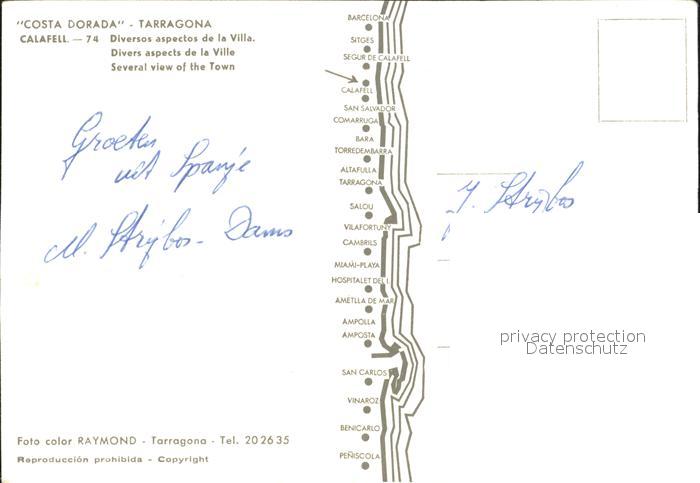 "COSTA DORADA" - TARRAGONA
CALAFELL. — 74 Diversos aspectos de la Villa.
Divers aspects de la Ville
Several view of the Town
Groeten
uit Spanje
M. Strijbos - Dams
Foto color RAYMOND - Tarragona - Tel. 202635
Reproducción prohibida - Copyright
BARCELONA
SITGES
SEGUR DE CALAFELL
CALAFELL
SAN SALVADOR
COMARRUGA
BARA
TORREDEMBARRA
ALTAFULLA
TARRAGONA
SALOU
VILAFORTUNY
CAMBRILS
MIAMI-PLAYA
HOSPITALET DEL I.
AMETLLA DE MAR
AMPOLLA
AMPOSTA
SAN CARLOS
VINAROZ
BENICARLO
PEÑISCOLA
J. Strijbos
privacy protection
Datenschutz